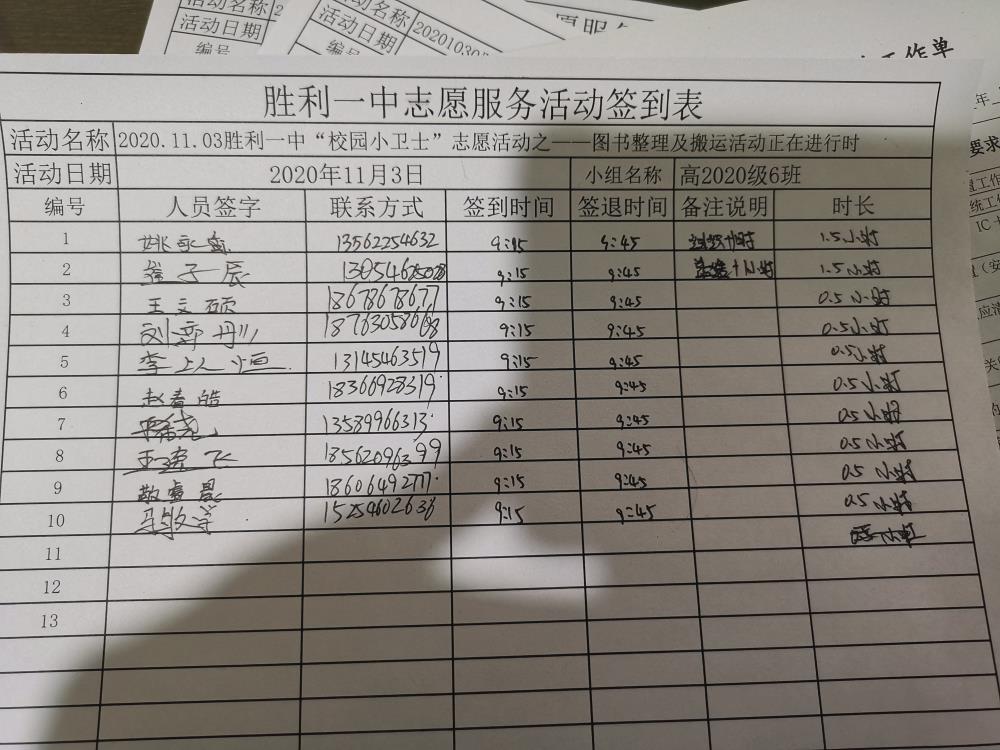 活动名称 2
活动日期
编号
活动名称
活动日期 20201030
编
愿服
工作单
胜利一中志愿服务活动签到表
活动名称 2020.11.03胜利一中“校园小卫士”志愿活动之——图书整理及搬运活动正在进行时
活动日期 2020年11月3日 小组名称 高2020级6班
编号 人员签字 联系方式 签到时间 签退时间 备注说明 时长
1 姚永盛 13562254632 9:15 9:45 1.5小时
2 崔子辰 9:15 9:45 1.5小时
3 王文硕 9:15 9:45 0.5小时
4 刘奕彤 18763058608 9:15 9:45 0.5小时
5 李上恒 13145463519 9:15 9:45 0.5小时
6 赵春皓 18366928319 9:15 9:45 0.5小时
7 13589966313 9:15 9:45 0.5小时
8 18562096399 9:15 9:45 0.5小时
9 敬睿晨 18606492777 9:15 9:45 0.5小时
10 马牧宇 15254602636 9:15 9:45 0.5小时
11
12
13
要求